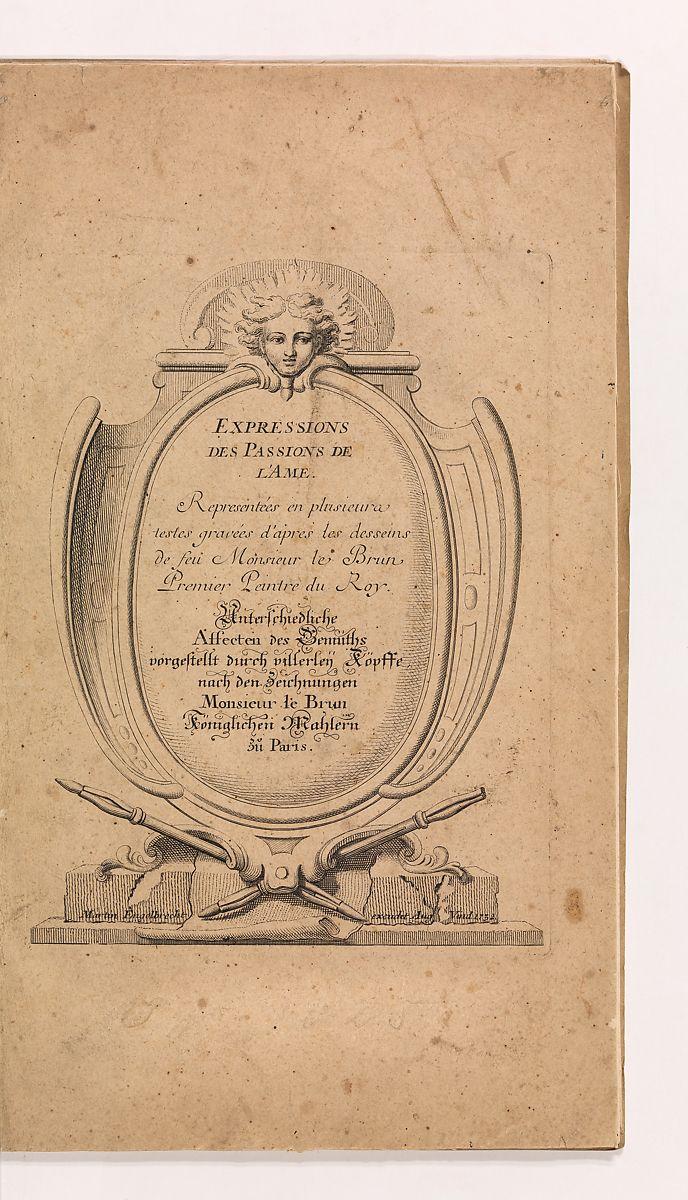 EXPRESSIONS
DES PASSIONS DE
L'AME.
Representées en plusieurs
testes gravées d'apres les desseins
de feu Monsieur le Brun
Premier Peintre du Roy.
Unterschiedliche
Affecten des Gemüths
vorgestellt durch villerley Köpffe
nach den Zeichnungen
Monsieur le Brun
Königlichen Mahlern
zu Paris.
Martin Engelbrecht excudit Aug. Vind.